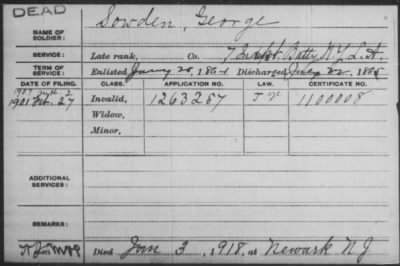 DEAD
NAME OF SOLDIER: Sowden, George
SERVICE: Late rank, Co. 7 Indpt. Batty N.Y. L. A.
TERM OF SERVICE: Enlisted Jany 20, 1864 Discharged July 22, 1865
DATE OF FILING. CLASS. APPLICATION NO. LAW. CERTIFICATE NO.
1901 27 Invalid, 1263257 1100008
Widow,
Minor,
ADDITIONAL SERVICES:
REMARKS:
Died June 3, 1918, at Newark NJ